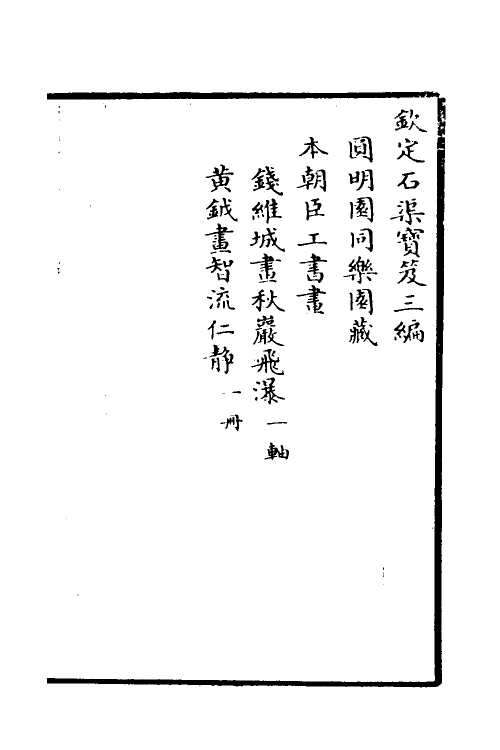 欽定石渠寶笈三編
圓明園同樂園藏
本朝臣工書畫
錢維城畫秋巖飛瀑一軸
黃鉞畫智流仁靜一冊